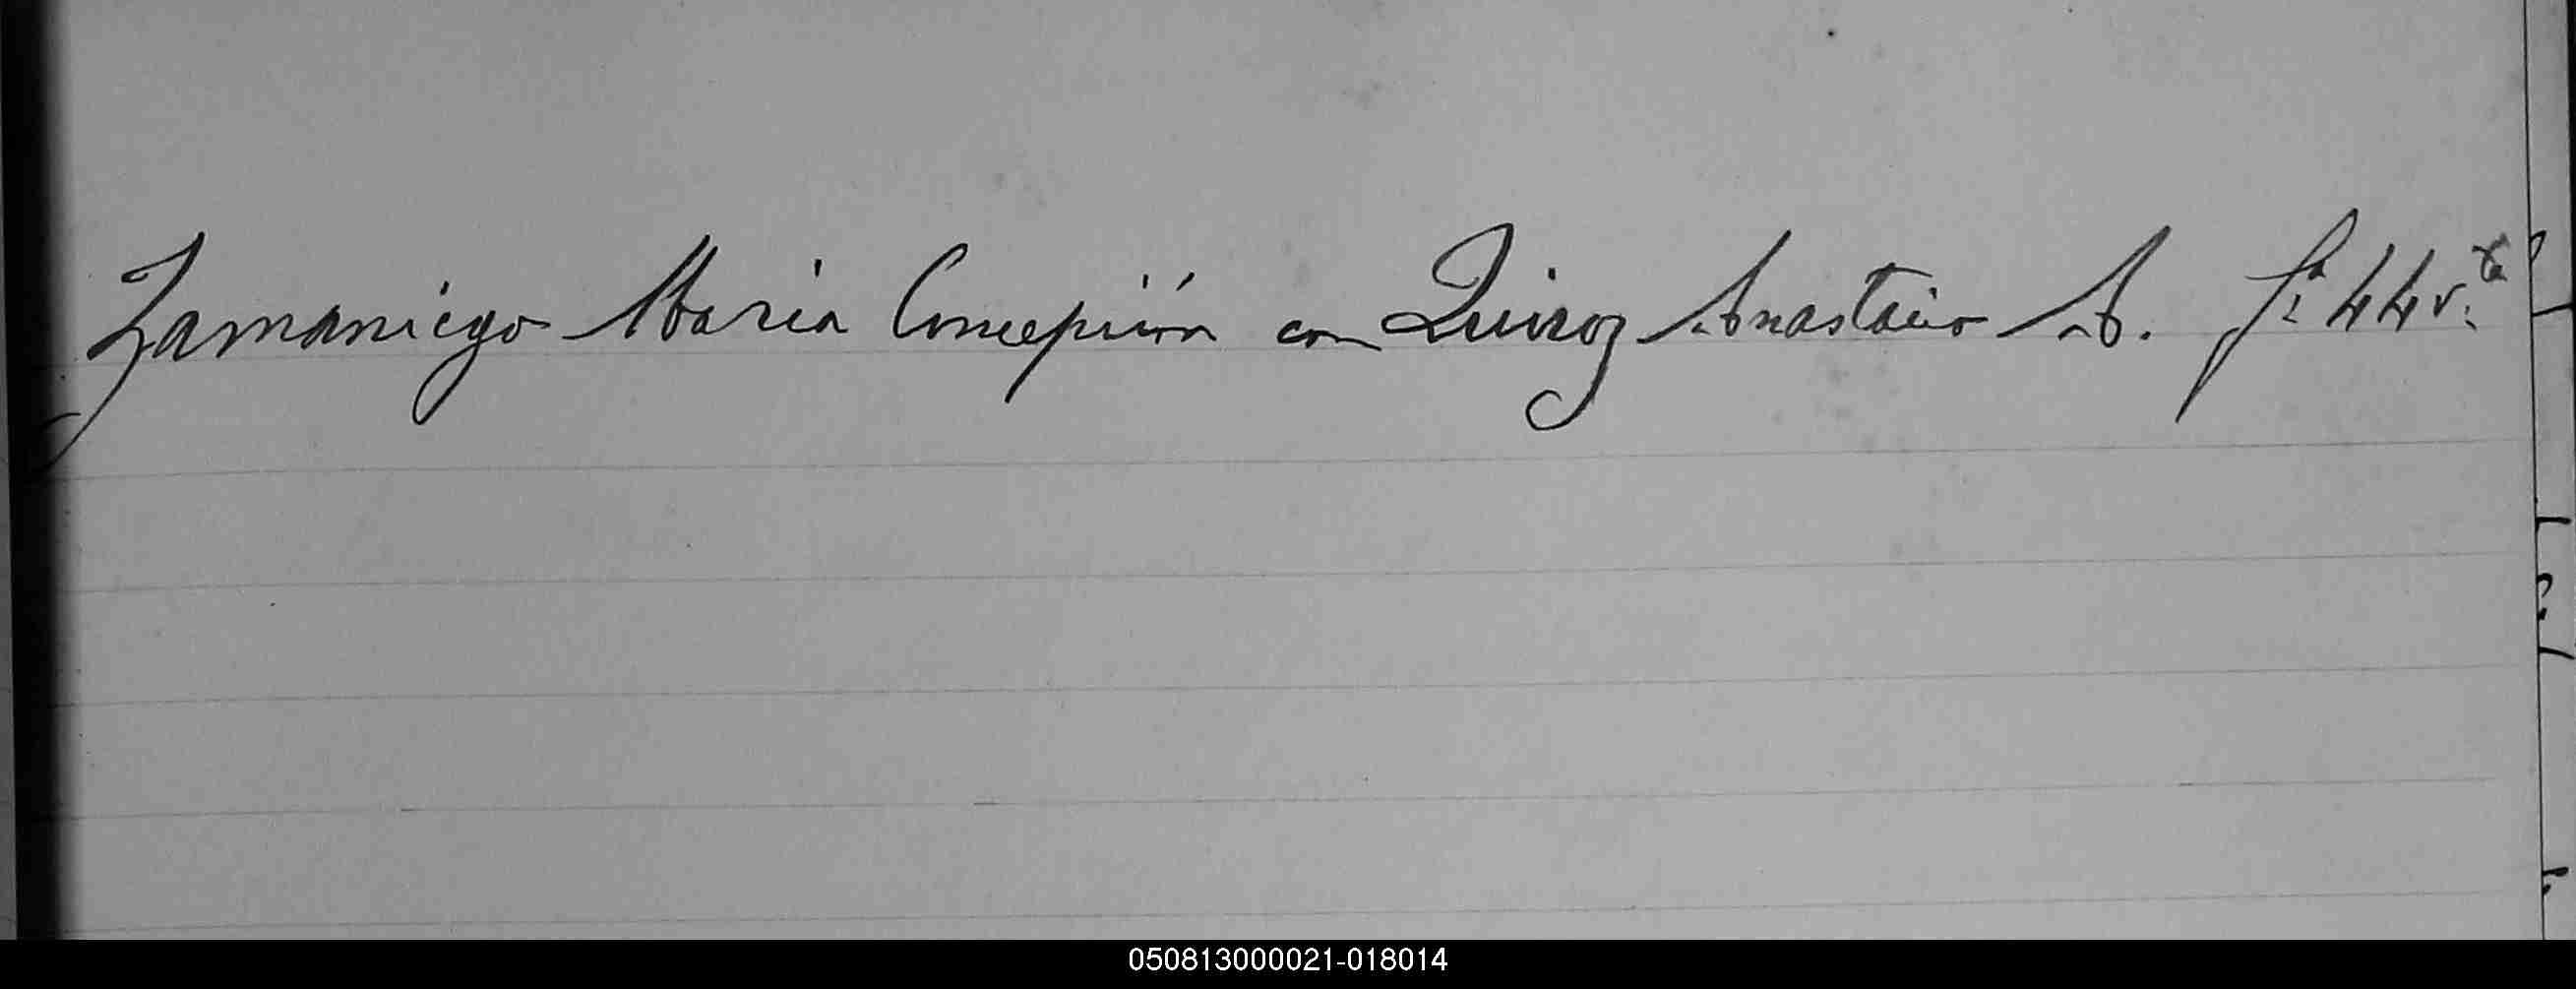 Zamaniego Maria Concepción con Quiroz Anastacio A. fs 44 v.ta
050813000021-018014